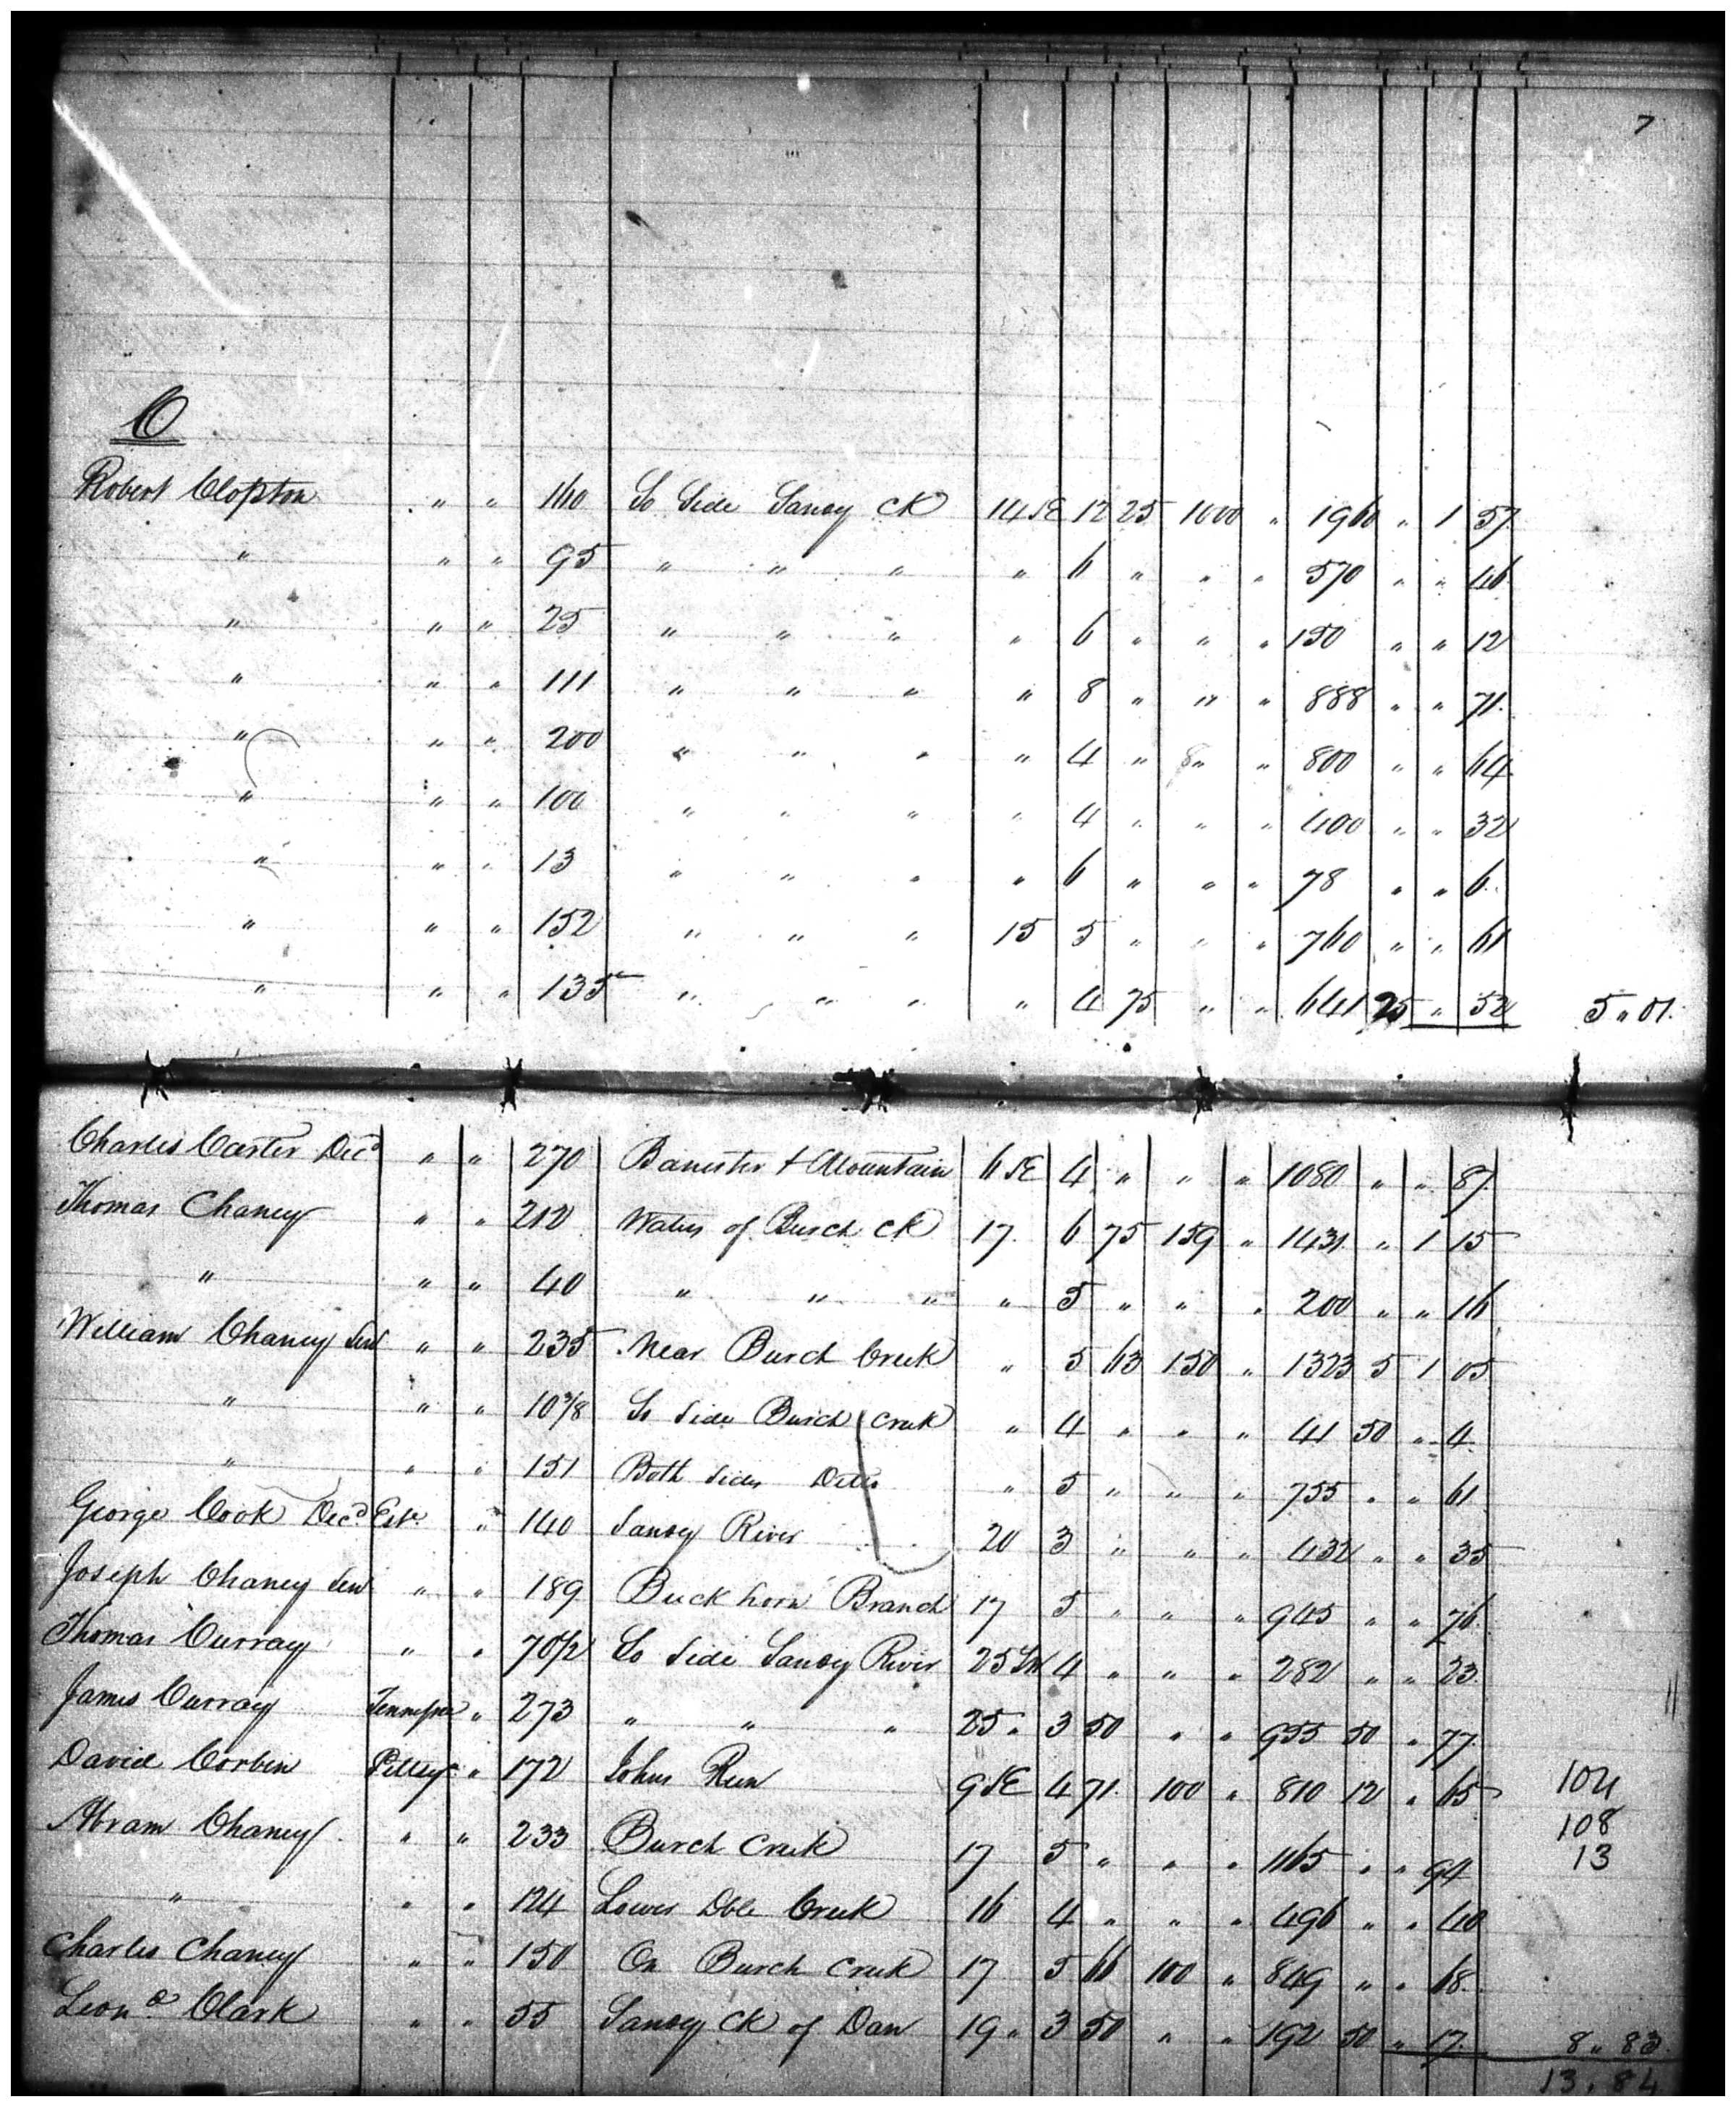 7
C
Robert Clopton " " 160 So Side Sandy Ck 14 SE 12 25 1000 " 1960 " 1 57
" " " 95 " " " " 6 " " " 570 " " 46
" " " 25 " " " " 6 " " " 150 " " 12
" " " 111 " " " " 8 " " " 888 " " 71
" " " 200 " " " " 4 " " " 800 " " 64
" " " 100 " " " " 4 " " " 400 " " 32
" " " 13 " " " " 6 " " " 78 " " 6
" " " 152 " " " 15 5 " " " 760 " " 61
" " " 135 " " " " 4 75 " " 641 25 " 52 5 " 01
Charles Carter Decd " " 270 Banister & Mountain 6 SE 4 " " " 1080 " " 87
Thomas Chaney " " 212 Waters of Burch Ck 17 6 75 159 " 1431 " 1 15
" " " 40 " " " " 5 " " " 200 " " 16
William Chaney Senr " " 235 Near Burch Creek " 5 63 150 " 1323 5 1 05
" " " 10 3/8 So Side Burch Creek " 4 " " " 41 50 " 4
" " " 151 Both Sides Ditto " 5 " " " 755 " " 61
George Cook Decd Este " 140 Sandy River 20 3 " " " 432 " " 35
Joseph Chaney Sen " " 189 Buck horn Branch 17 5 " " " 945 " " 76
Thomas Curray " " 70 1/2 So Side Sandy River 25 SW 4 " " " 282 " " 23
James Curray Tennessee " 273 " " " 25 " 3 50 " " 955 50 " 77
David Corbin Pittsya " 172 Johns Run 9 SE 4 71 100 " 810 12 " 65 104
Abram Chaney " " 233 Burch Creek 17 5 " " " 1165 " " 94 108
13
" " " 124 Lower Dble Creek 16 4 " " " 496 " " 40
Charles Chaney " " 150 On Burch Creek 17 5 66 100 " 849 " " 68
Leond Clark " " 55 Sandy Ck of Dan 19 " 3 50 " " 192 50 " 17 8 " 83
13 . 84